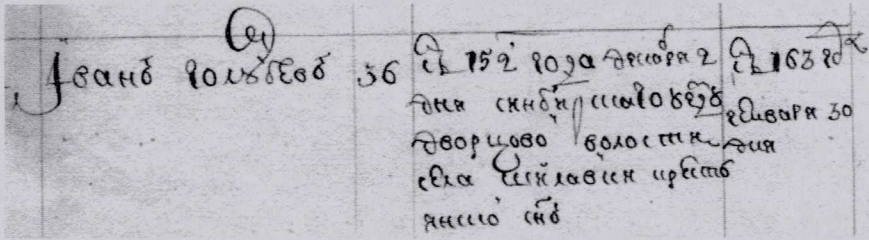 Иванъ Голубевъ
36
Въ 752 года декабря 2
дня синбирскаго уезду
дворцово волости
села крестъ
янско снъ
Въ 763 год
генваря 30
дня